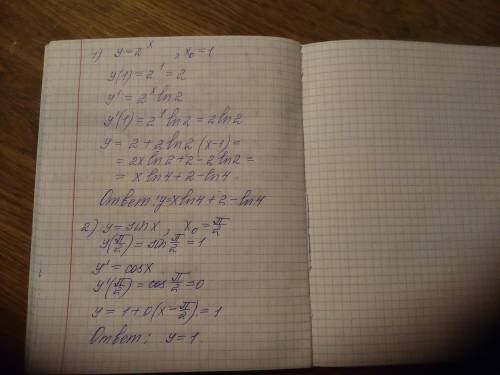 1) y = 2^x , x₀ = 1
y(1) = 2^1 = 2
y' = 2^x ln2
y'(1) = 2^1 ln2 = 2ln2
y = 2 + 2ln2 (x-1) =
= 2x ln2 + 2 - 2ln2 =
= x ln4 + 2 - ln4
Ответ: y = x ln4 + 2 - ln4
2) y = sin x , x₀ = π/2
y(π/2) = sin π/2 = 1
y' = cos x
y'(π/2) = cos π/2 = 0
y = 1 + 0(x - π/2) = 1
Ответ: y = 1